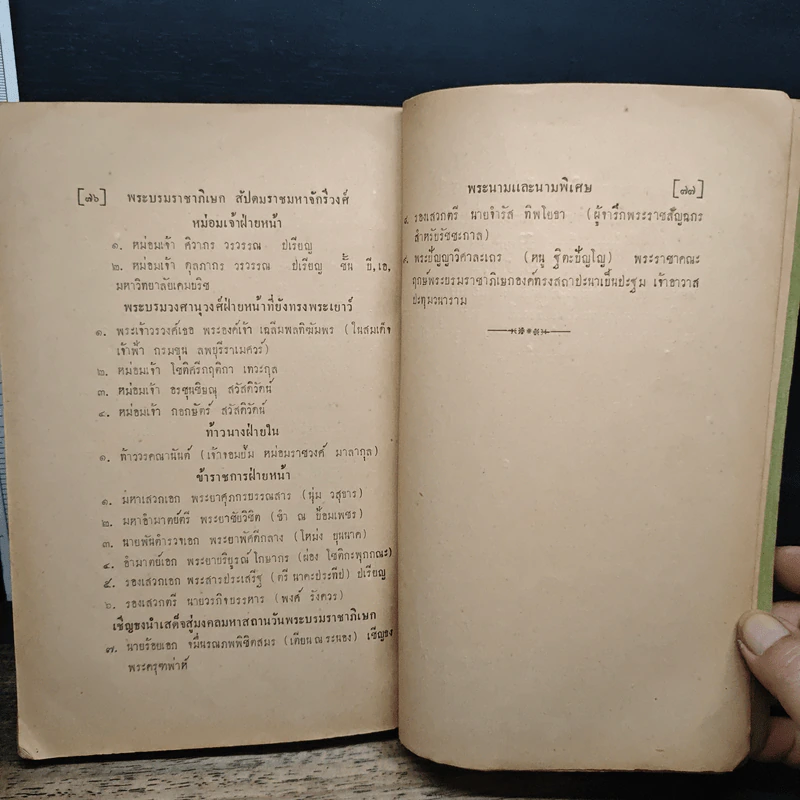 [๗๖] พระบรมราชาภิเษก สัปตมราชมหาจักรีวงศ์
หม่อมเจ้าฝ่ายหน้า
๑. หม่อมเจ้า ศิวากร วรวรรณ เปรียญ
๒. หม่อมเจ้า ดุลภากร วรวรรณ เปรียญ ชั้น บี,เอ,
มหาวิทยาลัยเคมบริช
พระบรมวงศานุวงศ์ฝ่ายหน้าที่ยังทรงพระเยาว์
๑. พระเจ้าวรวงศ์เธอ พระองค์เจ้า เฉลิมพลทิฆัมพร (ในสมเด็จ
เจ้าฟ้า กรมขุน ลพบุรีราเมศวร์)
๒. หม่อมเจ้า โชติศรีกฤติกา เทวะกุล
๓. หม่อมเจ้า อรชุนชิษณุ สวัสดิวัตน์
๔. หม่อมเจ้า กอกษัตร์ สวัสดิวัตน์
ท้าวนางฝ่ายใน
๑. ท้าววรคณานันต์ (เจ้าจอมยี่ม หม่อมราชวงศ์ มาลากุล)
ข้าราชการฝ่ายหน้า
๑. มหาเสวกเอก พระยาศุภกรบรรณสาร (นุ่ม วสุธาร)
๒. มหาอำมาตย์ตรี พระยาชัยวิชิต (ขำ ณ ป้อมเพชร)
๓. นายพันตำรวจเอก พระยาพัศดีกลาง (โหม่ง บุนนาค)
๔. อำมาตย์เอก พระยาบริบูรณ์โกษากร (ผ่อง โชติกะพุกกณะ)
๕. รองเสวกเอก พระสารประเสริฐ (ตรี นาคะประทีป) เปรียญ
๖. รองเสวกตรี นายวรกิจบรรหาร (พงศ์ รังควร)
เชิญธงนำเสด็จสู่มงคลมหาสถานวันพระบรมราชาภิเษก
๗. นายร้อยเอก ขมื่นรณภพพิชิตสมร (เตียน ณ ระนอง) เชิญธง
พระครุฑพ่าห์
พระนามและนามพิเศษ [๗๗]
๘. รองเสวกตรี นายจำรัส ทิพโยธา (ผู้จารึกพระราชลัญฉกร
สำหรับรัชชะกาล)
๙. พระปัญญาวิศาละเถร (หนู ฐิตะปัญโญ) พระราชาคณะ
ฤกษ์พระบรมราชาภิเษกองค์ทรงสถาปะนาเป็นปะฐม เจ้าอาวาส
ปะทุมวนาราม